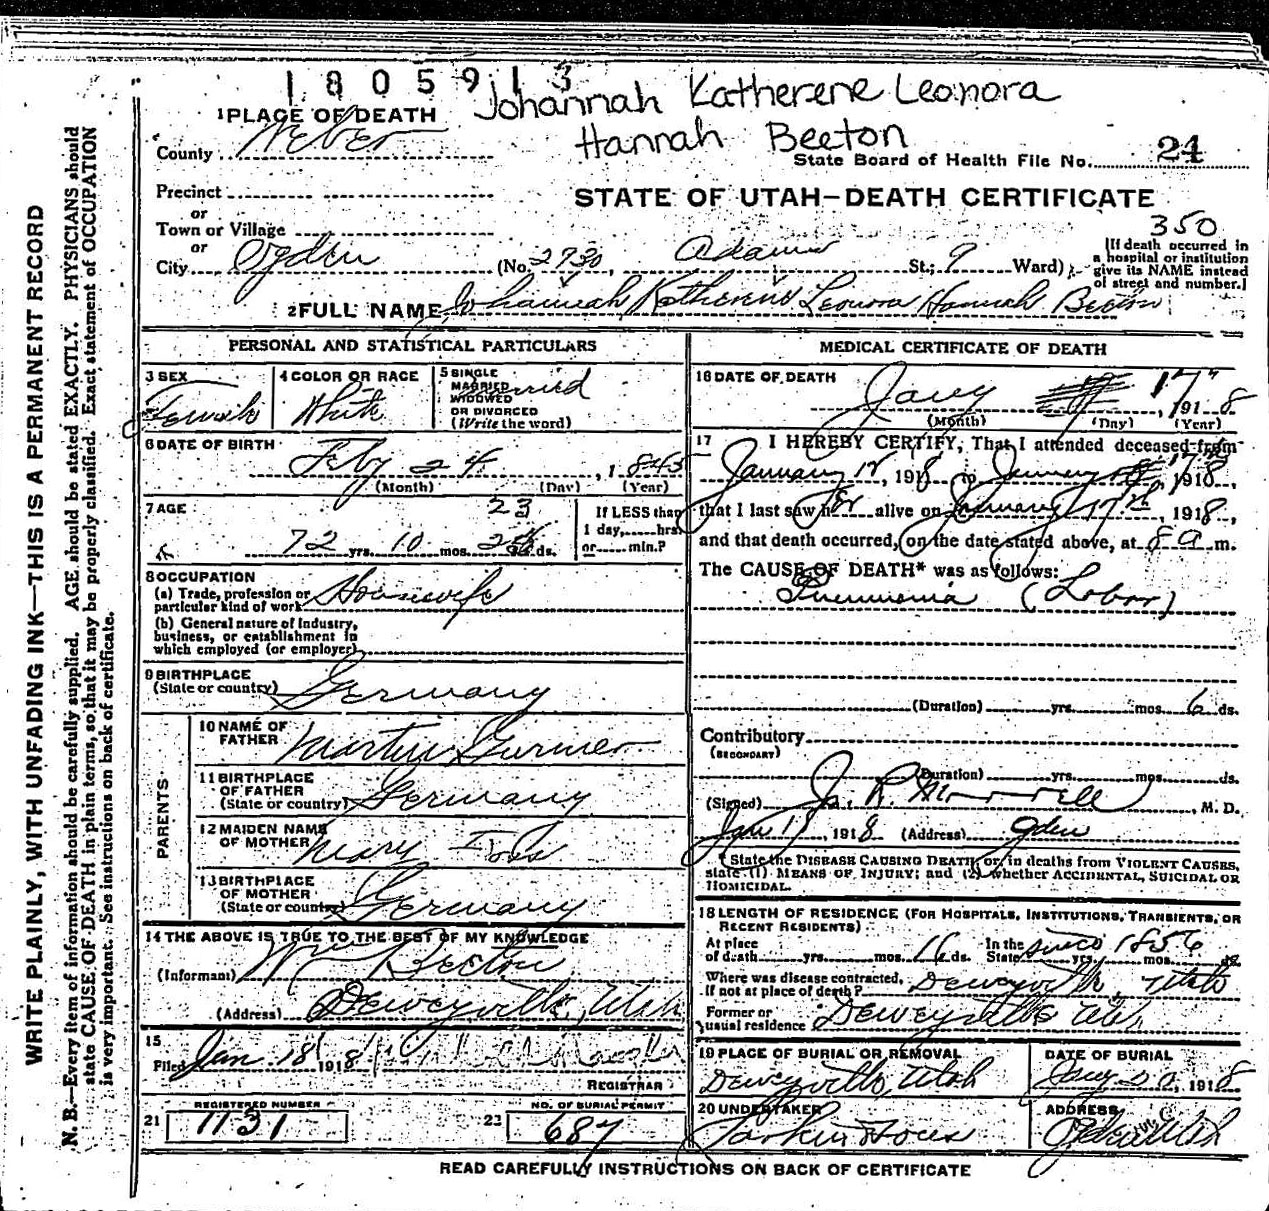 1805913
Johannah Katherene Leonora
Hannah Beeton
1 PLACE OF DEATH
County Weber
State Board of Health File No. 24
Precinct
or
Town or Village
or
City Ogden (No. 2730, Adams St.; 9 Ward)
STATE OF UTAH—DEATH CERTIFICATE
350
[If death occurred in
a hospital or institution
give its NAME instead
of street and number.]
2 FULL NAME Johannah Katherene Leonora Hannah Beeton
PERSONAL AND STATISTICAL PARTICULARS
3 SEX
Female
4 COLOR OR RACE
White
5 SINGLE
MARRIED
WIDOWED
OR DIVORCED
(Write the word)
Married
6 DATE OF BIRTH
Feby 24, 1845
(Month) (Day) (Year)
7 AGE
23
72 yrs. 10 mos. ds.
If LESS than
1 day, hrs.
or min.?
8 OCCUPATION
(a) Trade, profession or
particular kind of work Housewife
(b) General nature of industry,
business, or establishment in
which employed (or employer)
9 BIRTHPLACE
(State or country) Germany
PARENTS
10 NAME OF
FATHER Martin
11 BIRTHPLACE
OF FATHER
(State or country) Germany
12 MAIDEN NAME
OF MOTHER Mary
13 BIRTHPLACE
OF MOTHER
(State or country) Germany
14 THE ABOVE IS TRUE TO THE BEST OF MY KNOWLEDGE
(Informant) Wm Beeton
(Address) Deweyville, Utah
15
Filed Jan 18, 1918
REGISTRAR
21 REGISTERED NUMBER
1131
22 NO. OF BURIAL PERMIT
687
MEDICAL CERTIFICATE OF DEATH
16 DATE OF DEATH
Jany 17", 1918
(Month) (Day) (Year)
17 I HEREBY CERTIFY, That I attended deceased from
January 12, 1918, to January 17, 1918,
that I last saw her alive on January 17th, 1918,
and that death occurred, on the date stated above, at 8 a m.
The CAUSE OF DEATH* was as follows:
Pneumonia (Lobar)
(Duration) yrs. mos. 6 ds.
Contributory
(SECONDARY)
(Duration) yrs. mos. ds.
(Signed) J. R. Morrell, M. D.
Jan 18, 1918 (Address) Ogden
* State the DISEASE CAUSING DEATH, or, in deaths from VIOLENT CAUSES,
state (1) MEANS OF INJURY; and (2) whether ACCIDENTAL, SUICIDAL OR
HOMICIDAL.
18 LENGTH OF RESIDENCE (FOR HOSPITALS, INSTITUTIONS, TRANSIENTS, OR
RECENT RESIDENTS)
At place
of death yrs. mos. 16 ds.
In the
State since 1856 yrs. mos. ds.
Where was disease contracted,
If not at place of death? Deweyville, Utah
Former or
usual residence Deweyville Utah
19 PLACE OF BURIAL OR REMOVAL
Deweyville, Utah
DATE OF BURIAL
Jany 20, 1918
20 UNDERTAKER
Larkin & Sons
ADDRESS
Ogden Utah
READ CAREFULLY INSTRUCTIONS ON BACK OF CERTIFICATE
WRITE PLAINLY, WITH UNFADING INK—THIS IS A PERMANENT RECORD
N. B.—Every item of information should be carefully supplied. AGE should be stated EXACTLY. PHYSICIANS should
state CAUSE OF DEATH in plain terms, so that it may be properly classified. Exact statement of OCCUPATION
is very important. See instructions on back of certificate.